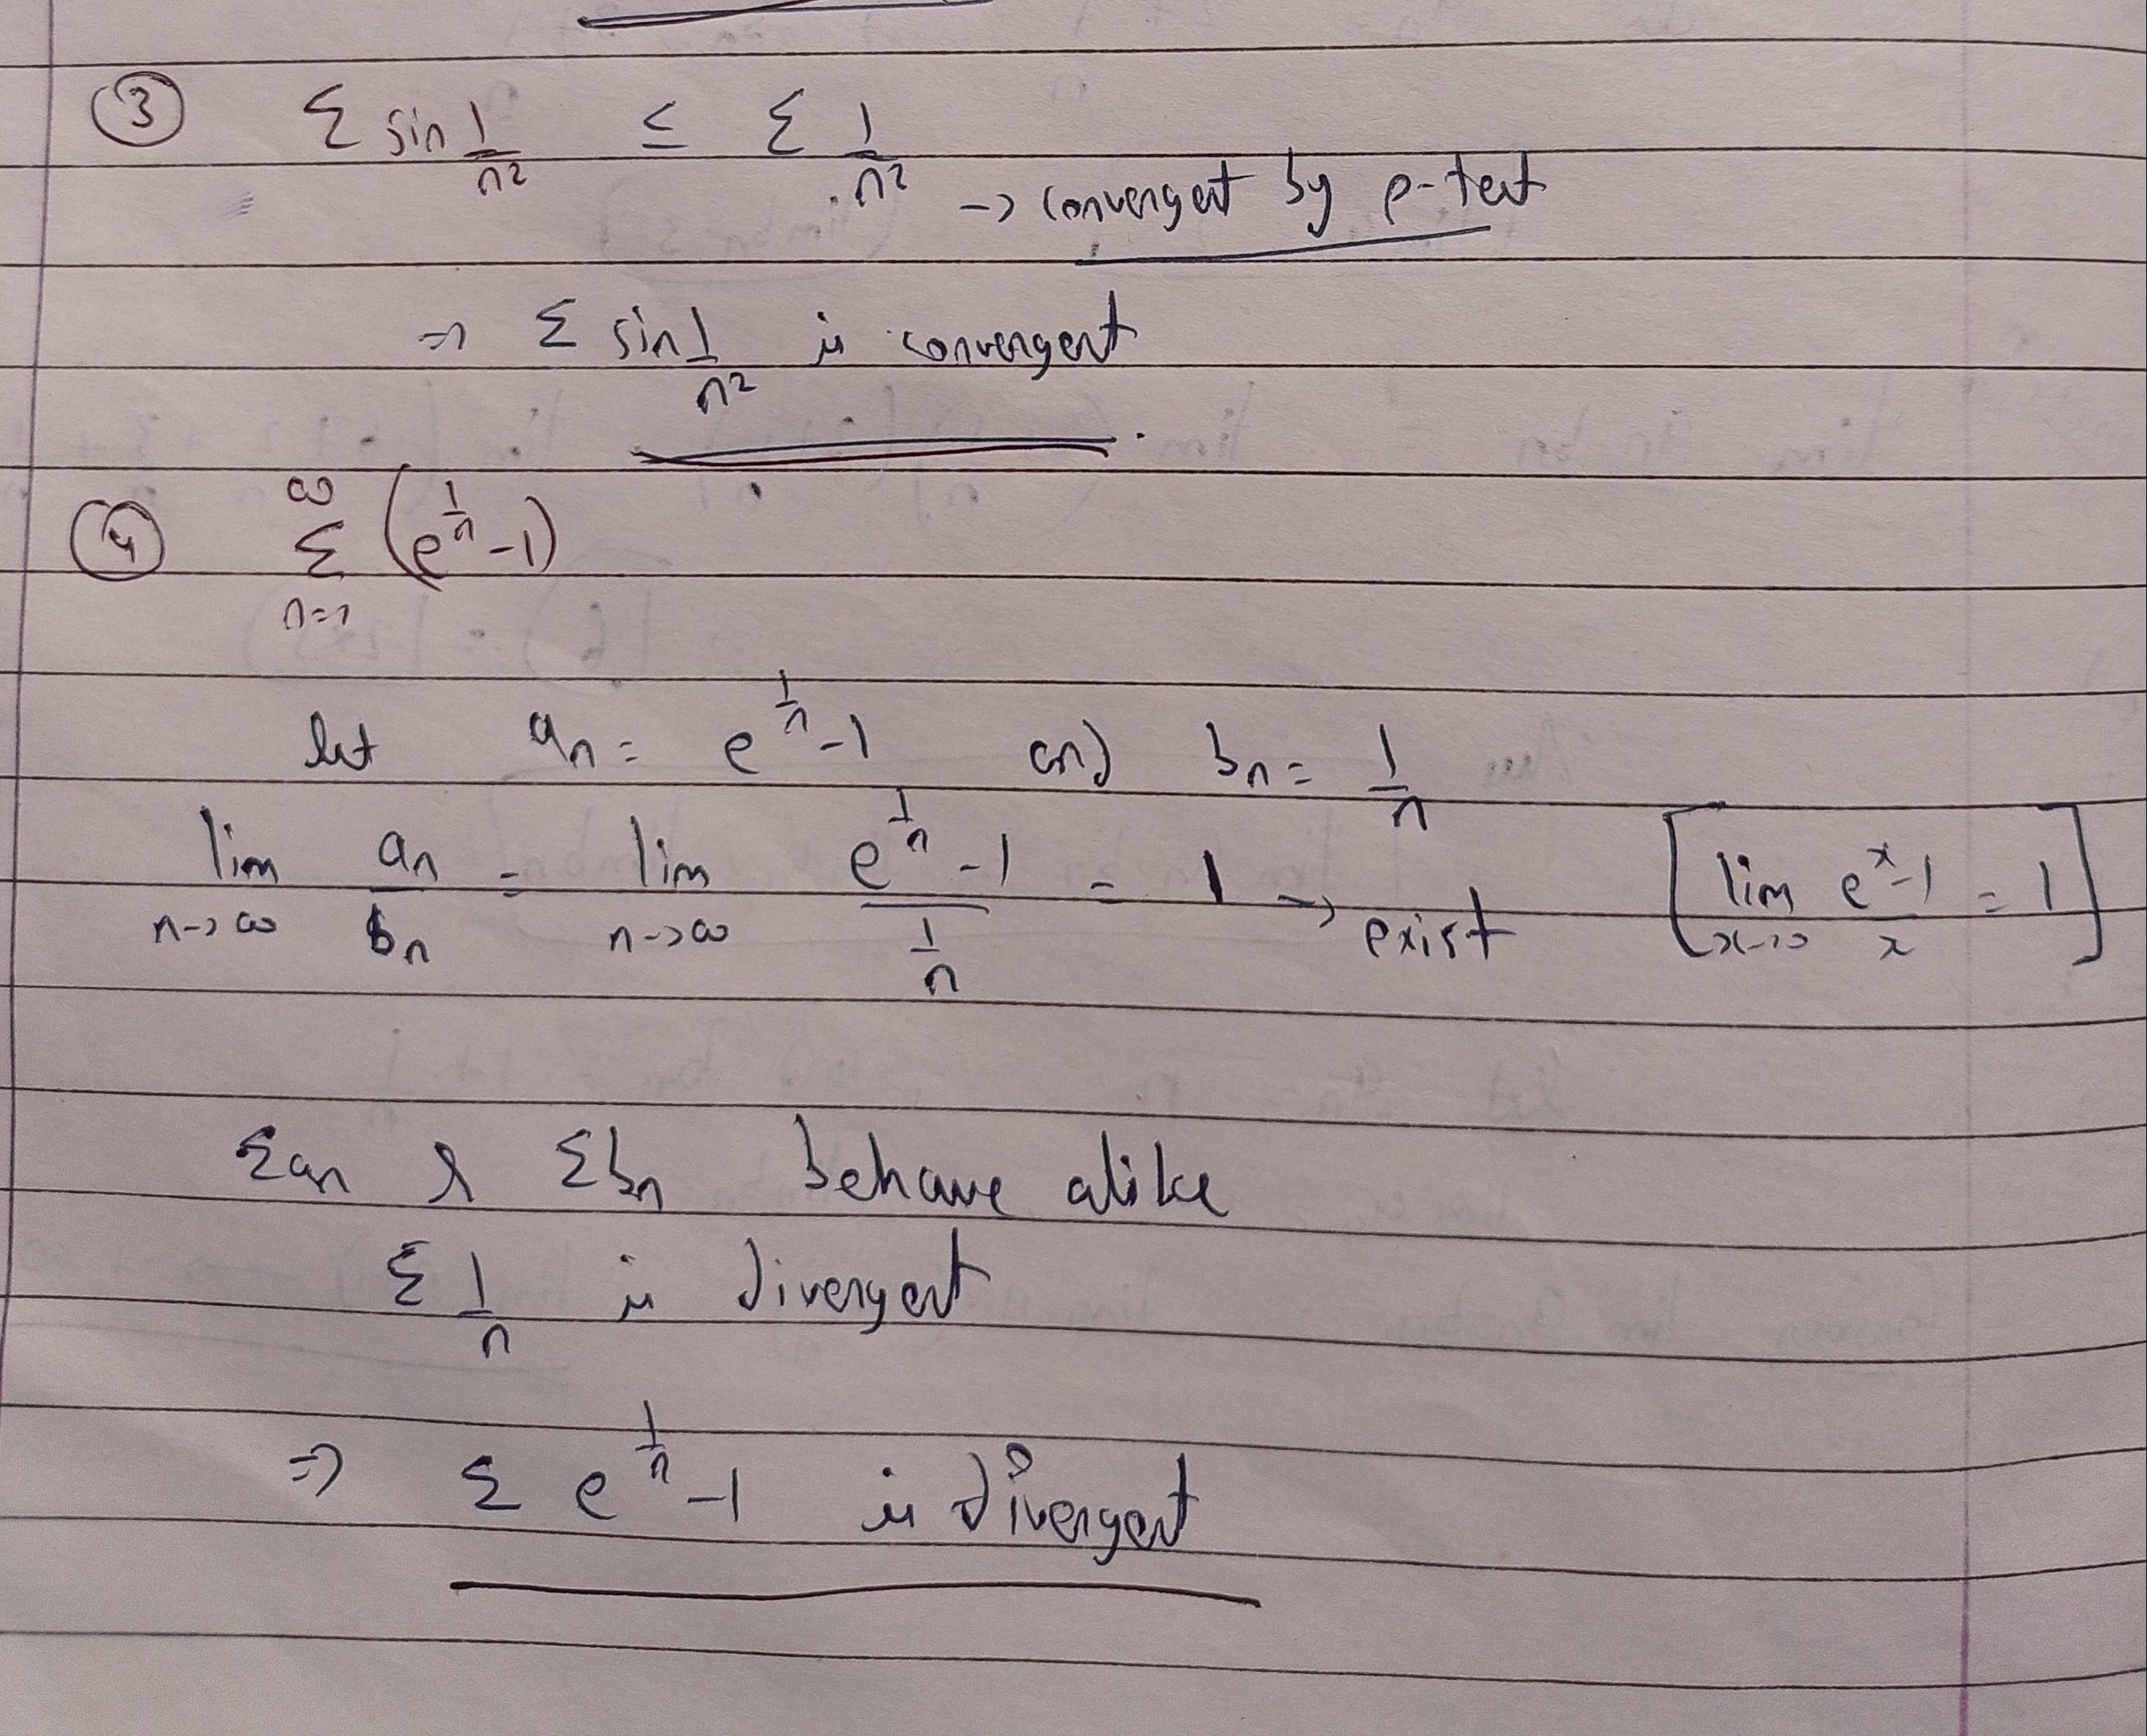 ③ Σ sin 1/n² ≤ Σ 1/n² → convergent by p-test
⇒ Σ sin 1/n² is convergent
④ ∞ Σ n=1 (e^(1/n) -1)
let aₙ = e^(1/n) -1 and bₙ = 1/n
lim n→∞ aₙ/bₙ = lim n→∞ (e^(1/n) -1)/(1/n) = 1 → exist [lim x→0 (e^x -1)/x = 1]
Σaₙ & Σbₙ behave alike
Σ 1/n is divergent
⇒ Σ e^(1/n) -1 is divergent